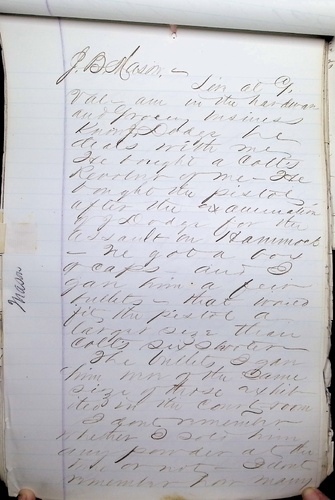 J. B. Mason. — Live at Cy.
Vale am in the hardware
and Grocery business
Know Dodge he
deals with me.
He bought a Colts
Revolver of me — He
bought the pistol
after the examination
of J Dodge for the
assault on Hammock
— he got a box
of caps — and I
gave him a few
bullets — that would
fit the pistol a
larger size than
Colts six shooter —
The bullets I gave
him were of the same
size of those exhib
ited in the court room
I dont remember
whether I sold him
any powder at the
time or not — I dont
remember how many
Mason